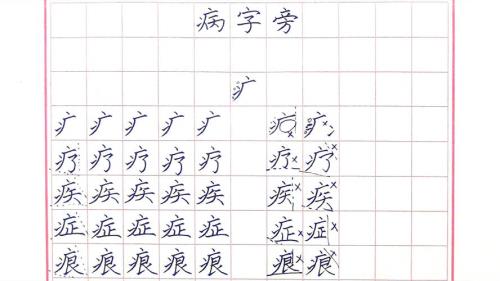 病字旁
疒
疒 疒 疒 疒 疒 疒 疒
疗 疗 疗 疗 疗 疗 疗
疾 疾 疾 疾 疾 疾 疾
症 症 症 症 症 症 症
痕 痕 痕 痕 痕 痕 痕